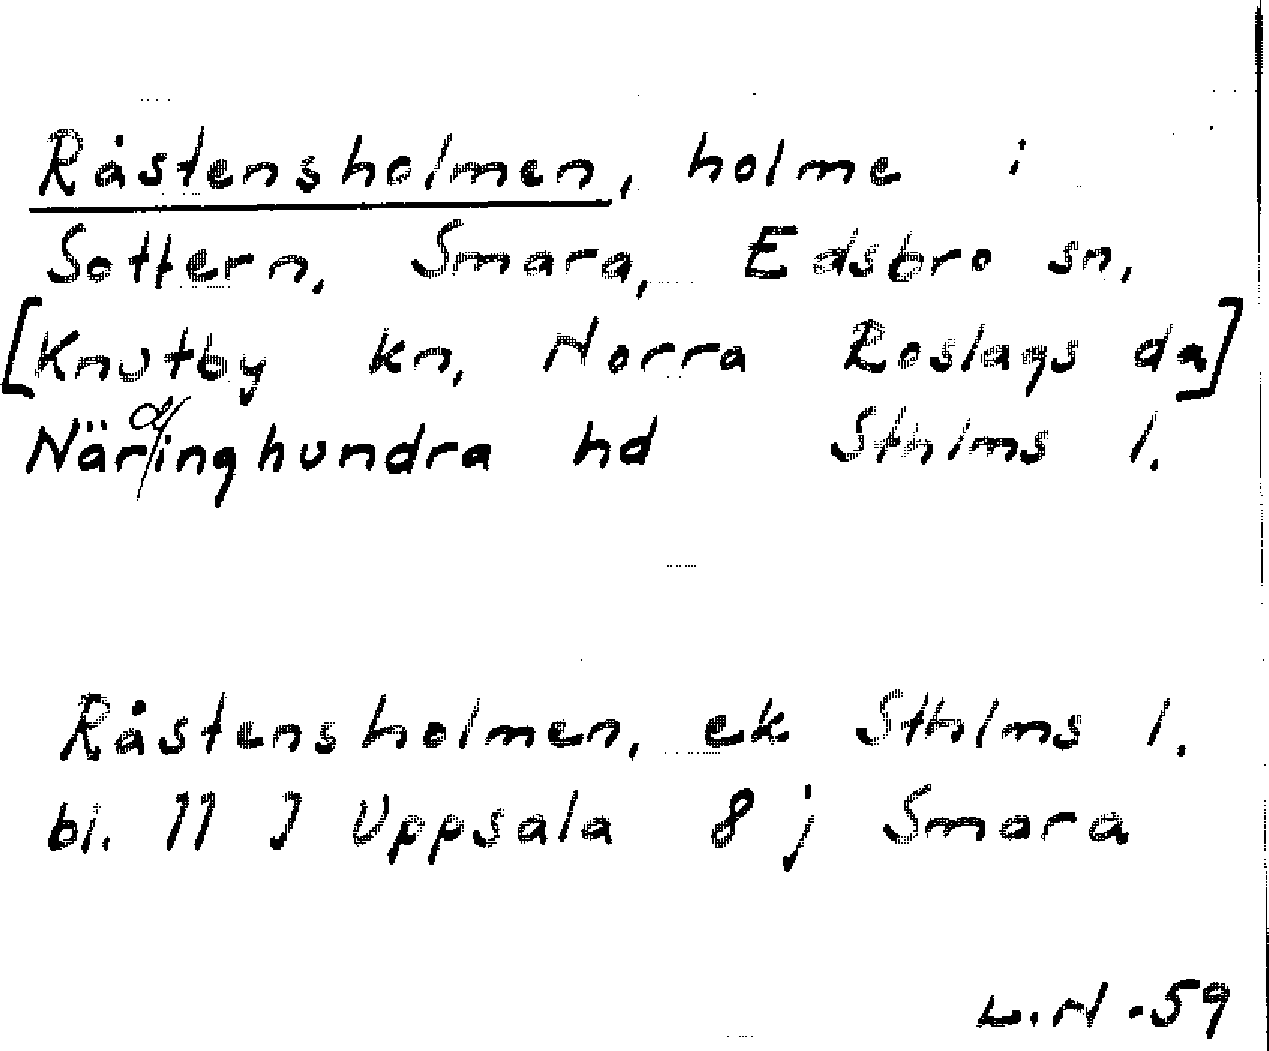 Råstensholmen, holme i
Sottern, Smara, Edsbro sn,
[Knutby kn, Norra Roslags da]
Närdinghundra hd Sthlms l.
Råstensholmen, ek Sthlms l.
bl. 11 J Uppsala 8 j Smara
L.N -59